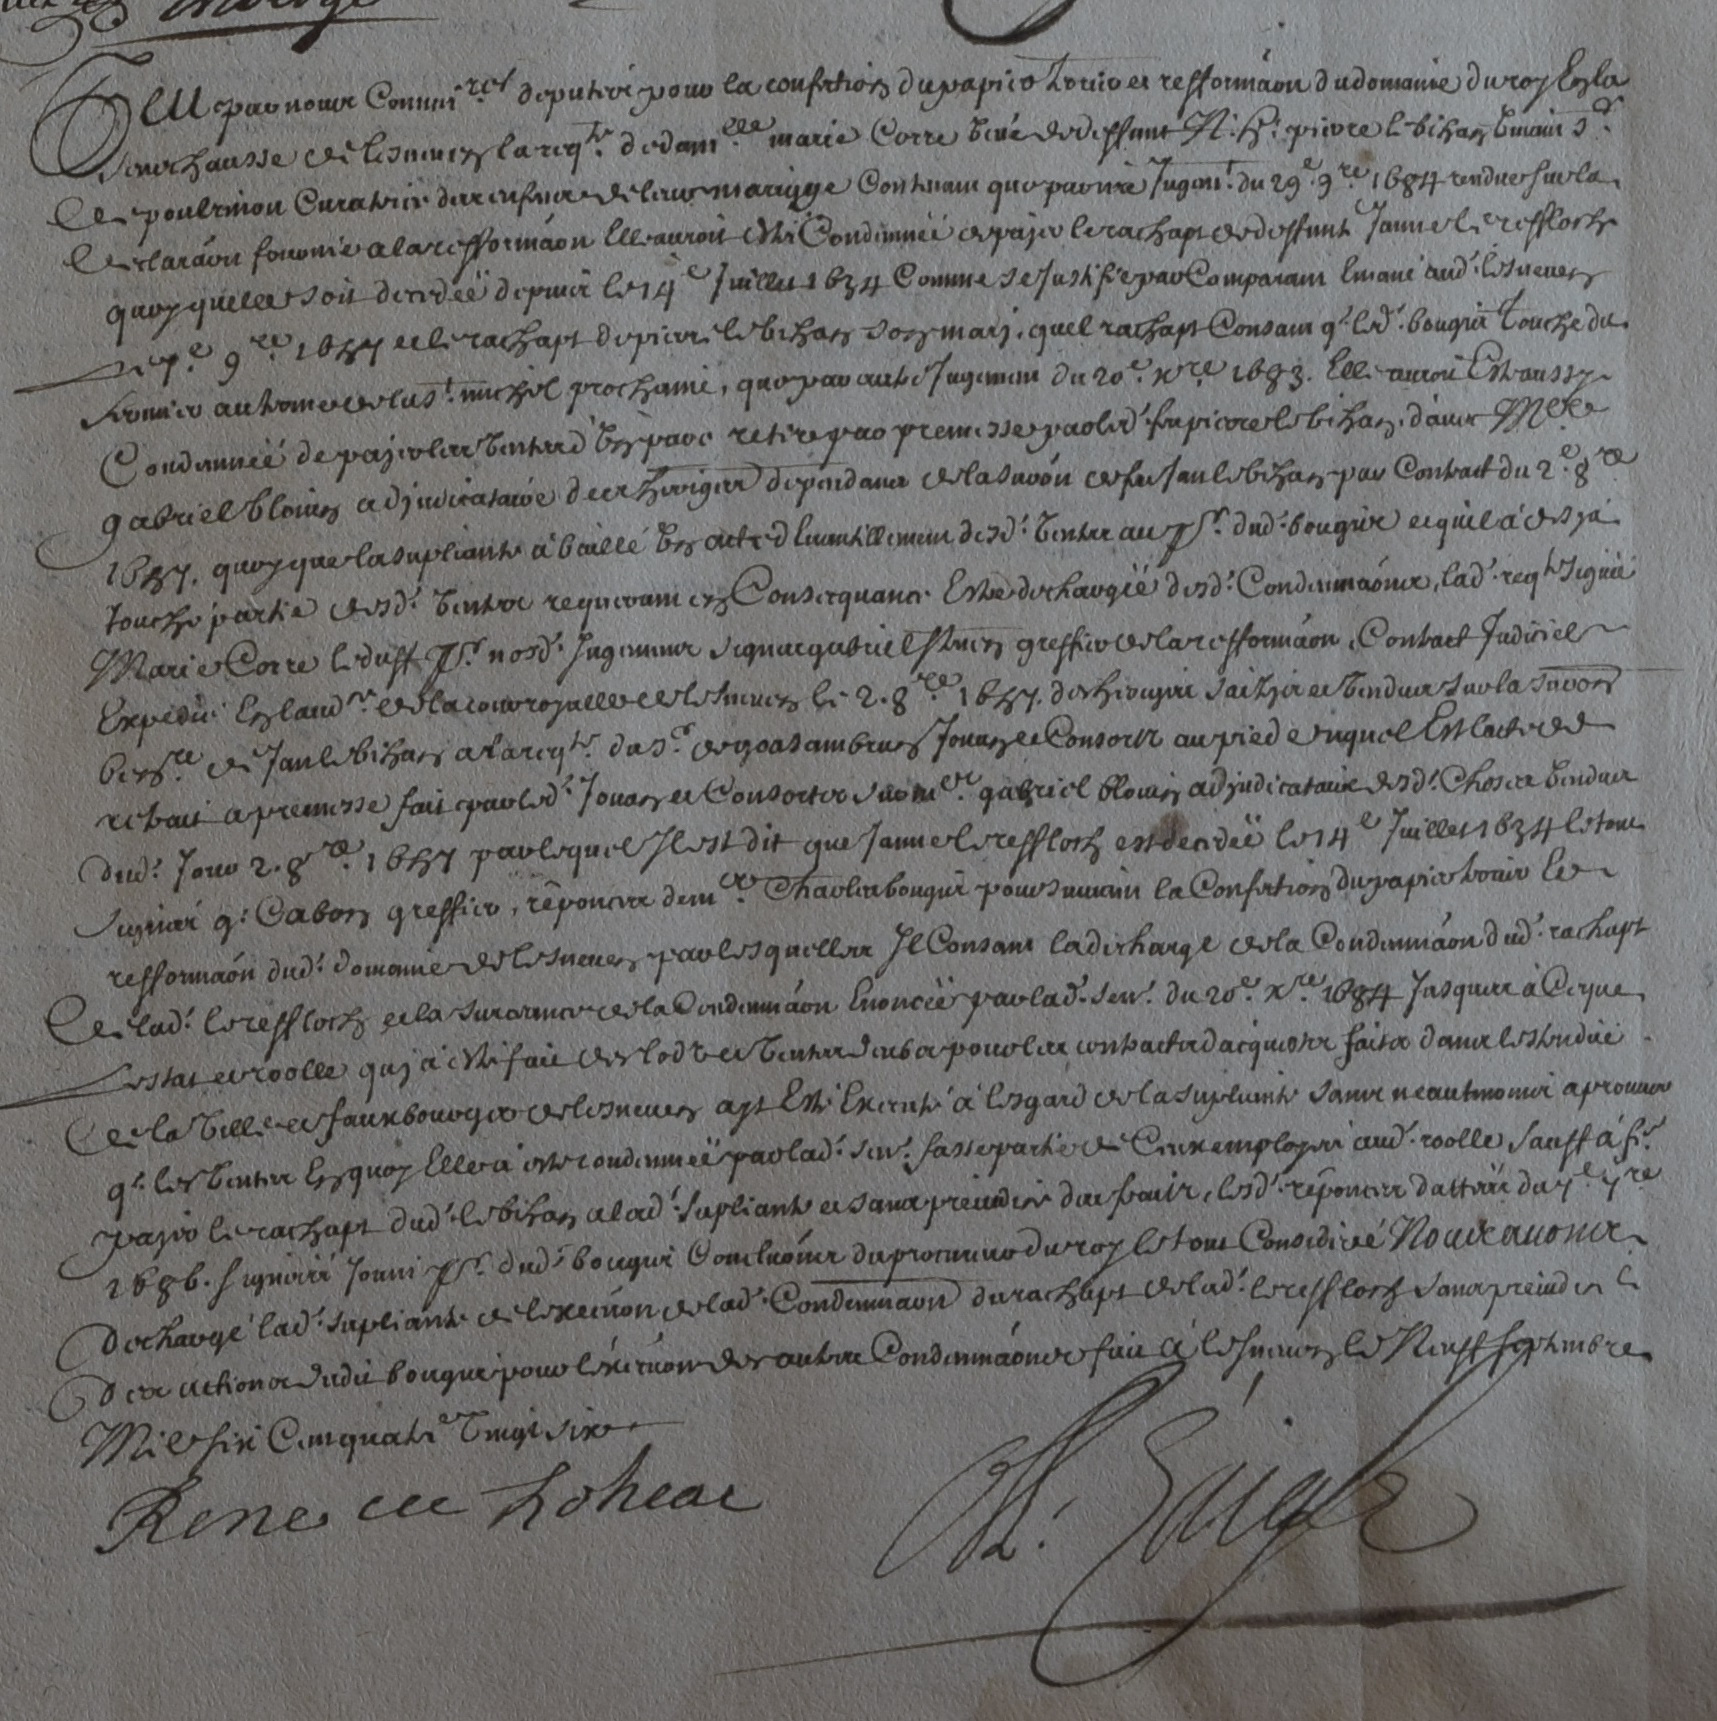 Veu par nous Commi.res deputés pour la confection du papier Terrier et refformâon du domaine du roy En la
Senechaussé de Lesneven la reqte. de dam.elle marie Corre veue de deffunt N. h. pierre le bihan vivain s.r
de poulrinou Curatrice des enfans de leur mariage Contenant que par nre Jugemt. du 29e. 9re. 1684 rendue sur la
declaraon fournie a la refformâon Elle auroit esté Condamnée de paier le rachapt de deffunte Janne le reffloch
quoy quelle soit decedée depuis le 14e Juillet 1634 Comme se Justifie par Comparant Emané aud. lesneven
le 7e. 9re. 1657 et le rachapt de pierre le bihan son mary, quel rachapt Consant q. led. bougis Touche du
fermier au terme de la St. michel prochaine, que par autre Jugement du 20e. xre. 1683. Elle auroit Esté aussy
Condamnée de paier les ventes d'Un parc retiré par premesse par led. feu pierre le bihan, d'avec Me
gabriel blouin adjudicataire des heritages dependans de la suôn de feu Jan le bihan par Contract du 2e 8re
1657. quoy que la supliante à baillé Un acte d'Eventillement desd. ventes au pr. dud. bougis et quil à desja
touché partie desd. ventes requerant en Consequance Estre dechargée desd. Condamnâons, lad. reqte signée
Marie Corre leduff pr. nosd. Jugemens signes gabriel greffier de la refformâon, Contract Judiciel
Expedié En laud.ce de la cour royalle de lesneven le 2. 8re. 1657. des heritages saizies et vendues sur la suôn
de Jan le bihan a la reqte. du s.r de goasambruen Jouan et Consorts au pied duquel Est l'acte de
retrait a premesse fait par led. Jouan et Consortes sur m.e gabriel blouin adjudicataire desd. Choses vendues
dud. Jour 2. 8re. 1657 par lequel Il est dit que Janne le reffloch est decedée le 14e Juillet 1634 le tout
signés g. Cabon greffier, réponces de m.e Charles bougis poursuivain la Confection du papier terrier et
refformâon dud. domaine de lesneven par lesquelles Il Consant la décharge de la Condamnâon dud. rachapt
de lad. le reffloch et la surceance de la Condamnâon Enoncée par lad. sen. du 20e. xre. 1684 Jusques à Ce que
l'estat et roolle quy à esté fait de lods et ventes deubs pour les contracts d'acquests faits dans lestendue
de la ville et fauxbourgs de lesneven ayt Esté Executé à l'esgard de la supliante sans neantmoins aprouver
q. les ventes En quoy Elle à esté condamnée par lad. sen. fasse partie de Ceux employés aud. roolle sauff à fe.
paier le rachapt dud. le bihan a lad. supliante et sans preiudice des fraix, lesd. réponces dattées du 7e 7re
1686. signées Jouni pr. dud. bougis Conclusions du procureur du roy le tout Consideré Nous avons
deschargé lad. supliante de l'execuôn de lad. Condamnâon du rachapt de lad. le reffloch sans preiudice
des actions dudit bougis pour l'execuôn des autres Condamnâons fait à lesneven le Neuff septembre
Mil six Cens quatre vingt six
Rene de Loheac